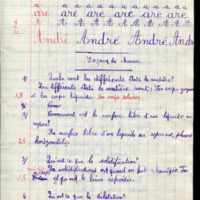 a a a a a a a a
are are are are are are are
A A A A A A A A A
André André André André
Leçons de choses
1/ Quels sont les différents états de matière?
Les différents états de matière sont: Les corps gazeux
et les corps liquides. les corps solides
2/ Comment est la surface libre d'un liquide au
repos?
La surface libre d'un liquide au repos est plane et
horizontale.
3/ Qu'est-ce que la solidification?
La solidification est quand on fait
et qu'on le laisse refroidir.
4/ Qu'est-ce que la dilatation?